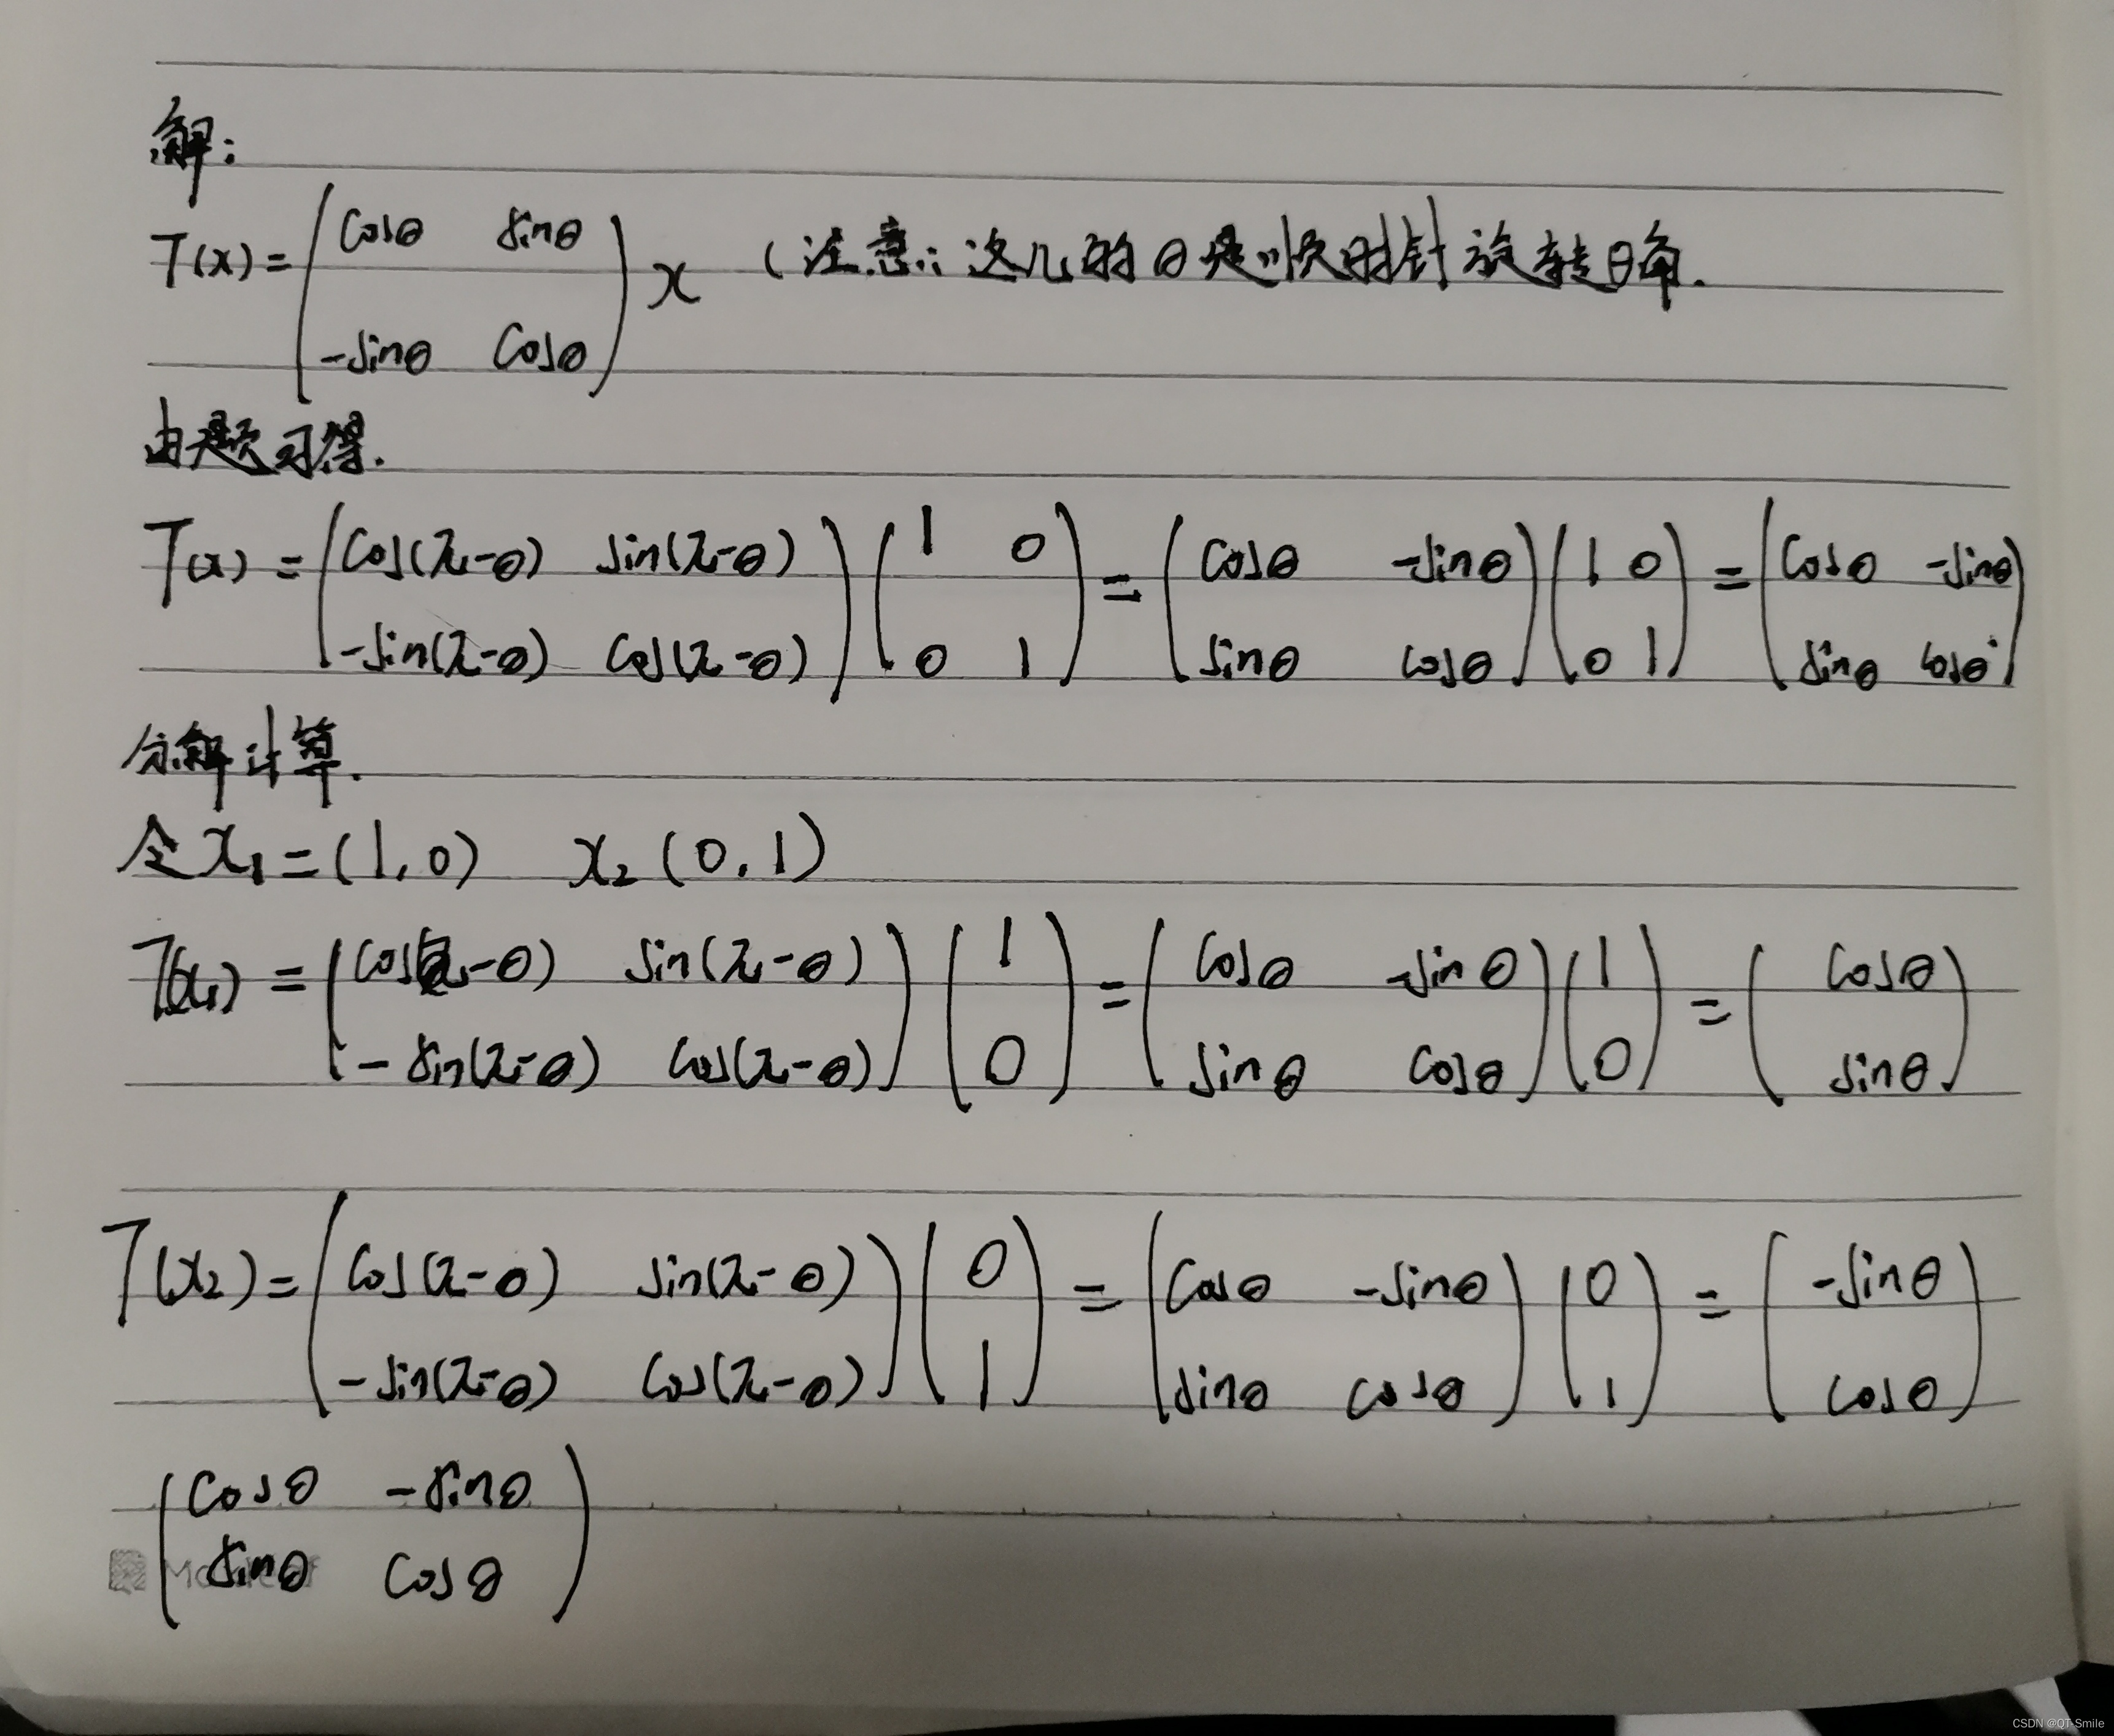 解:
T(x) = ( cosθ sinθ
-sinθ cosθ ) x (注意: 这儿的θ是顺时针旋转θ角.
由题可得.
T(x) = ( cos(2π-θ) sin(2π-θ)
-sin(2π-θ) cos(2π-θ) ) ( 1 0
0 1 ) = ( cosθ -sinθ
sinθ cosθ ) ( 1 0
0 1 ) = ( cosθ -sinθ
sinθ cosθ )
分解计算.
令 x₁ = (1, 0) x₂ (0, 1)
T(x₁) = ( cos(2π-θ) sin(2π-θ)
-sin(2π-θ) cos(2π-θ) ) ( 1
0 ) = ( cosθ -sinθ
sinθ cosθ ) ( 1
0 ) = ( cosθ
sinθ )
T(x₂) = ( cos(2π-θ) sin(2π-θ)
-sin(2π-θ) cos(2π-θ) ) ( 0
1 ) = ( cosθ -sinθ
sinθ cosθ ) ( 0
1 ) = ( -sinθ
cosθ )
( cosθ -sinθ
sinθ cosθ )
CSDN @QT-Smile